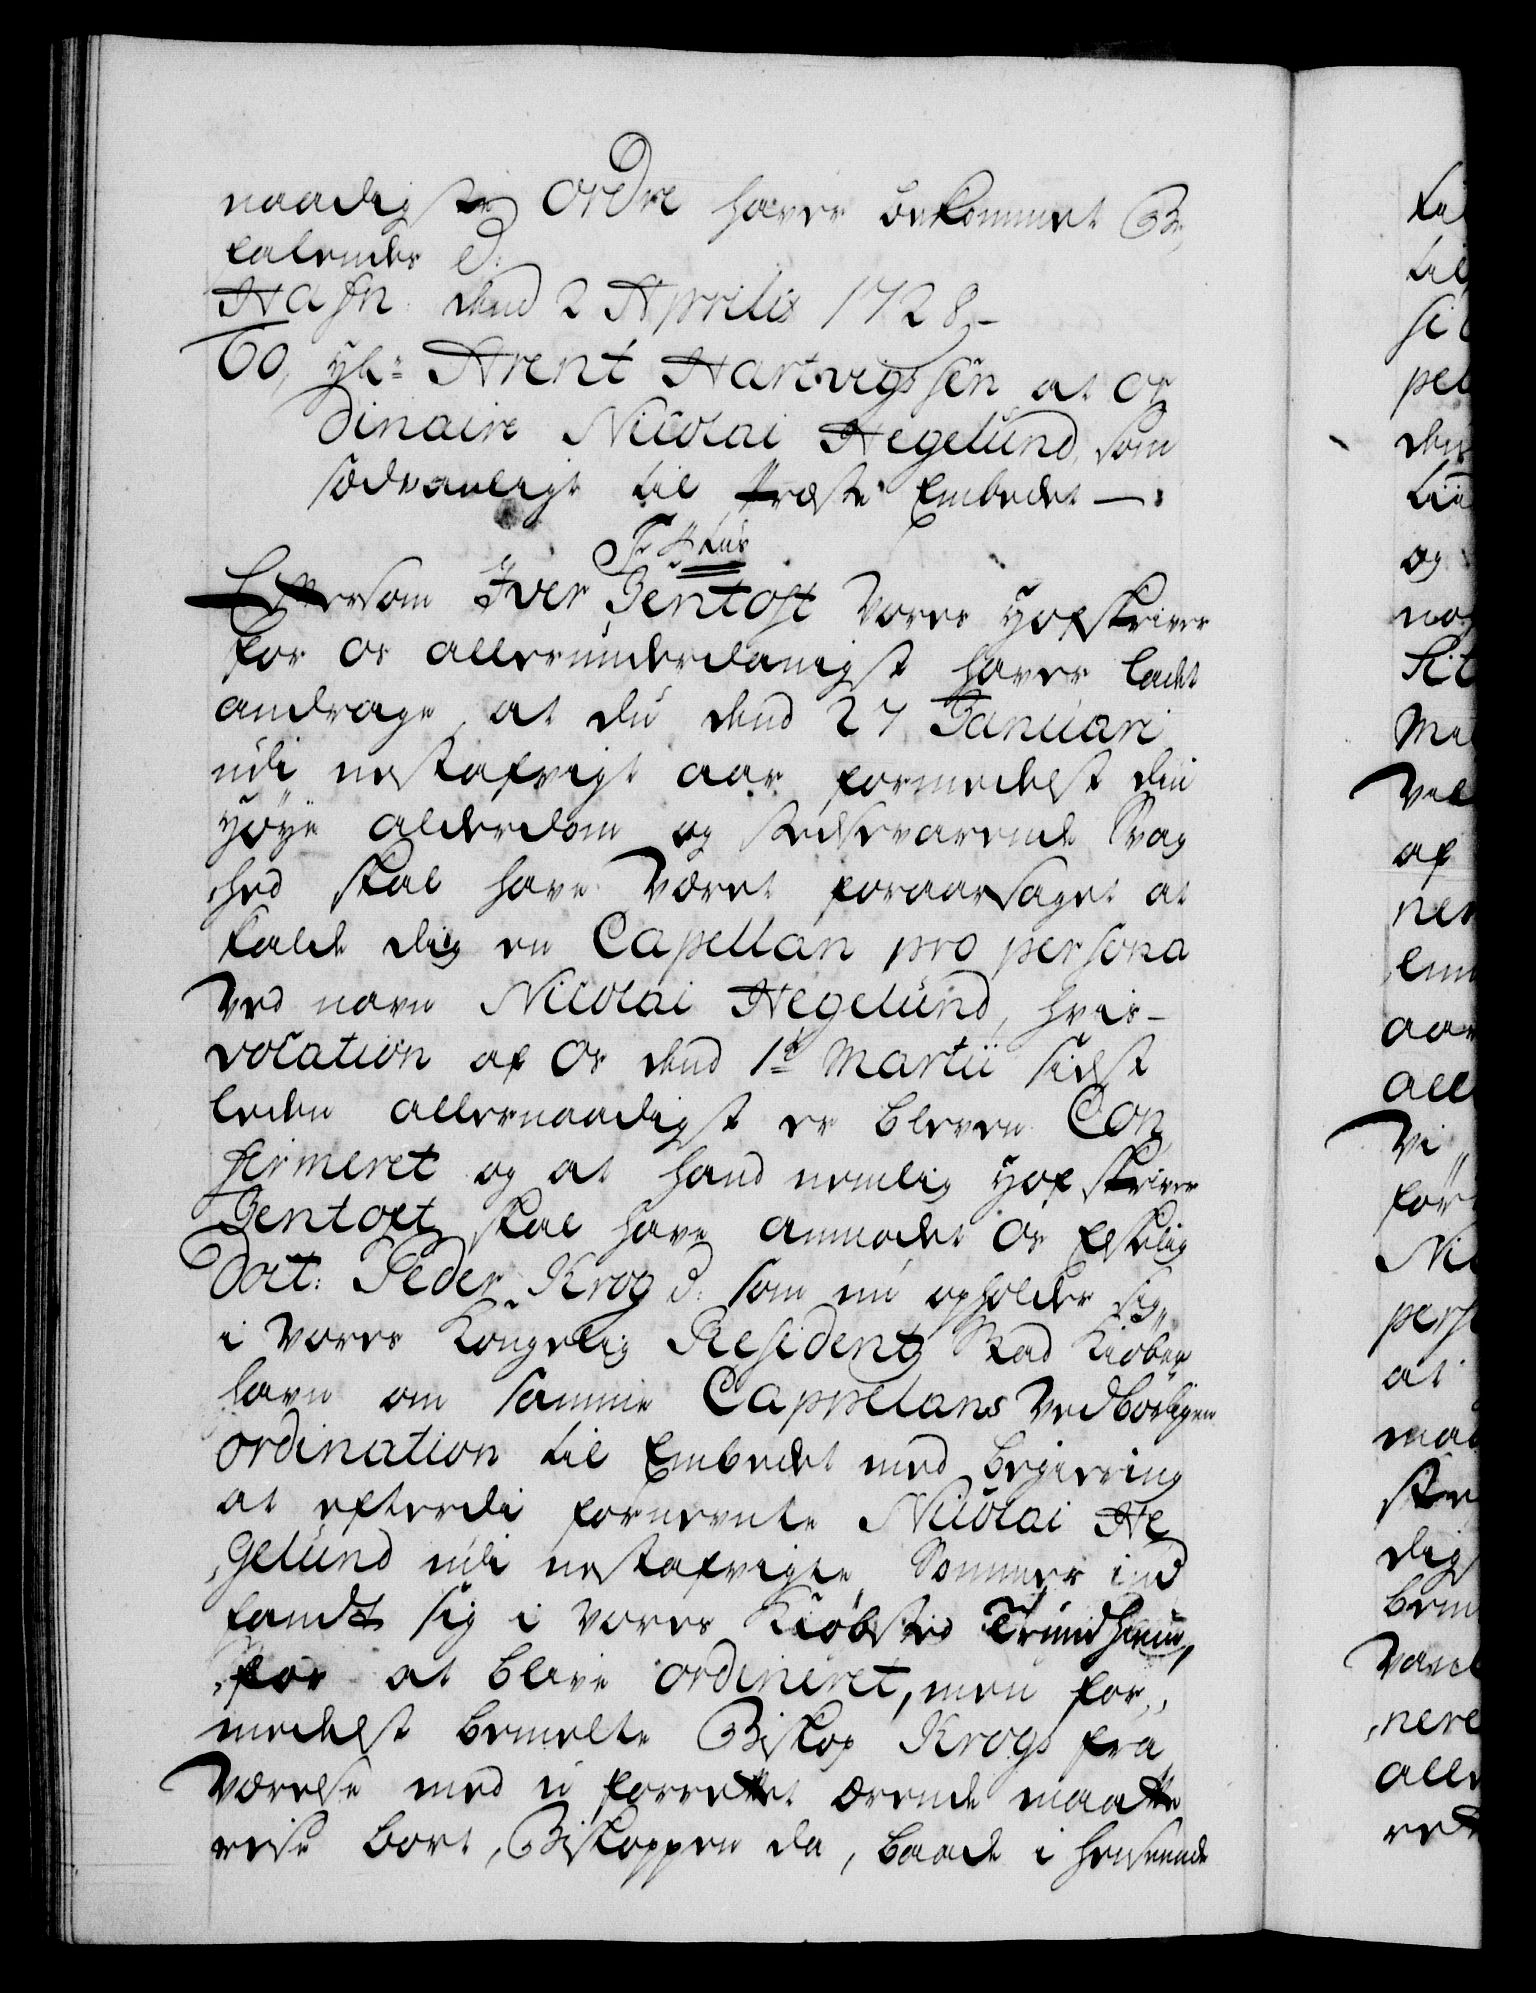 naadigste Ordre haver bekommet Be,
falendes d:
Hafn: dend 2 Aprilis 1728,-
60, Hr: Arent Hartvigssen at or
dinaire Nicolai Hegelund, som
sædvanligt til Præste Embedet —:
F 4tus
Eftersom Iver Gentoft Vores Hofskriver
for os allerunderdanigst haver ladet
andrage, at du dend 27 Januari
udi nestafvigt aar formedelst din
høye alderdom og stedsevarende Svag
,hed skal have Været foraarsaget at
kalde dig en Capellan pro persona
Ved navn Nicolai Hegelund, hvis-
vocation af Os dend 1te Martii sidst
leden allernaadigst er bleven Con,
firmeret og at hand nemlig Hofskriver
Gentoft skal have anmodet Os Elskelig
Doct: Peder Krog d: som nu opholder sig
i Vores Kongelig Residentz Stad Kiøben
havn om samme Cappelans Vedbørligen
ordination til Embedet med begiering
at efterdi fornevnte Nicolai He
,gelund udi nestafvigte Sommer ind
fandt sig i Vores Kiøbsted Trundhiem,
,for at blive ordineret, men for,,
medelst bemelte Biskop Krogs fra
Værelse med u forrettet ærende maatte
reise bort, Biskoppen da, baade i henseende